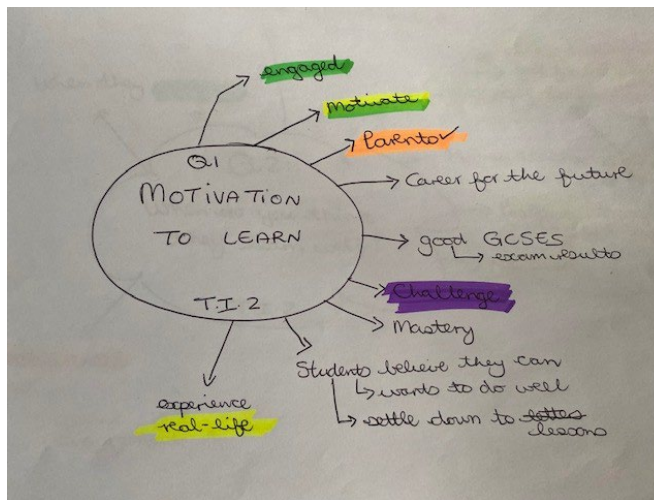 engaged
motivate
Parents
Q.1
MOTIVATION
TO LEARN
T.I.2
Career for the future
good GCSES
exam results
Challenge
Mastery
Students believe they can
wants to do well
settle down to
lessons
experience
real-life